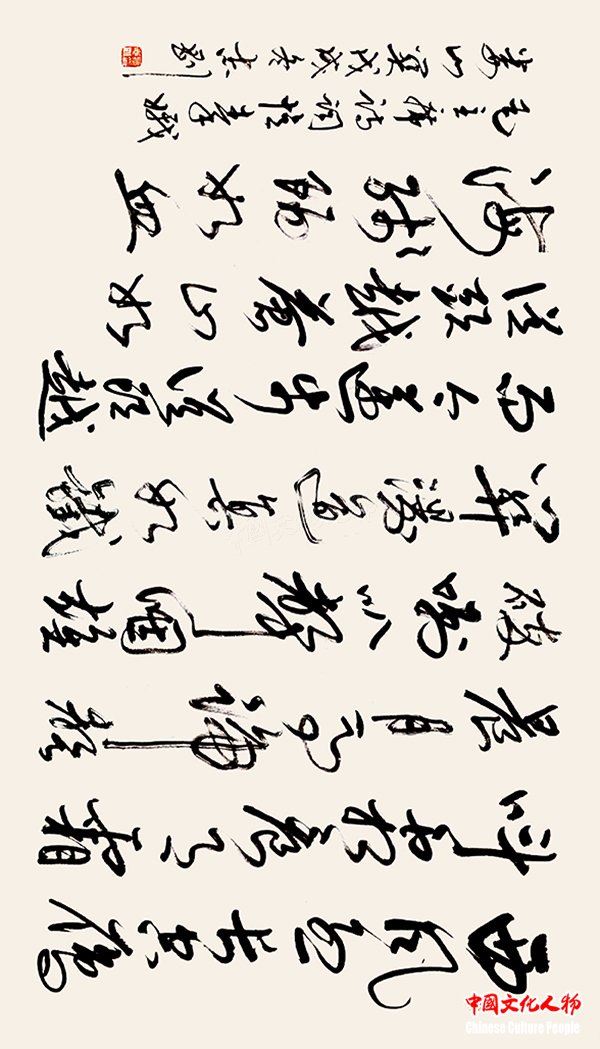 西风烈长空雁
叫霜晨月霜
晨月马蹄声
碎喇叭声咽雄
关漫道真如铁
而今迈步从头越
从头越苍山如
海残阳如血
毛主席诗词忆秦娥
娄山关戊戌冬
中國文化人物
Chinese Culture People